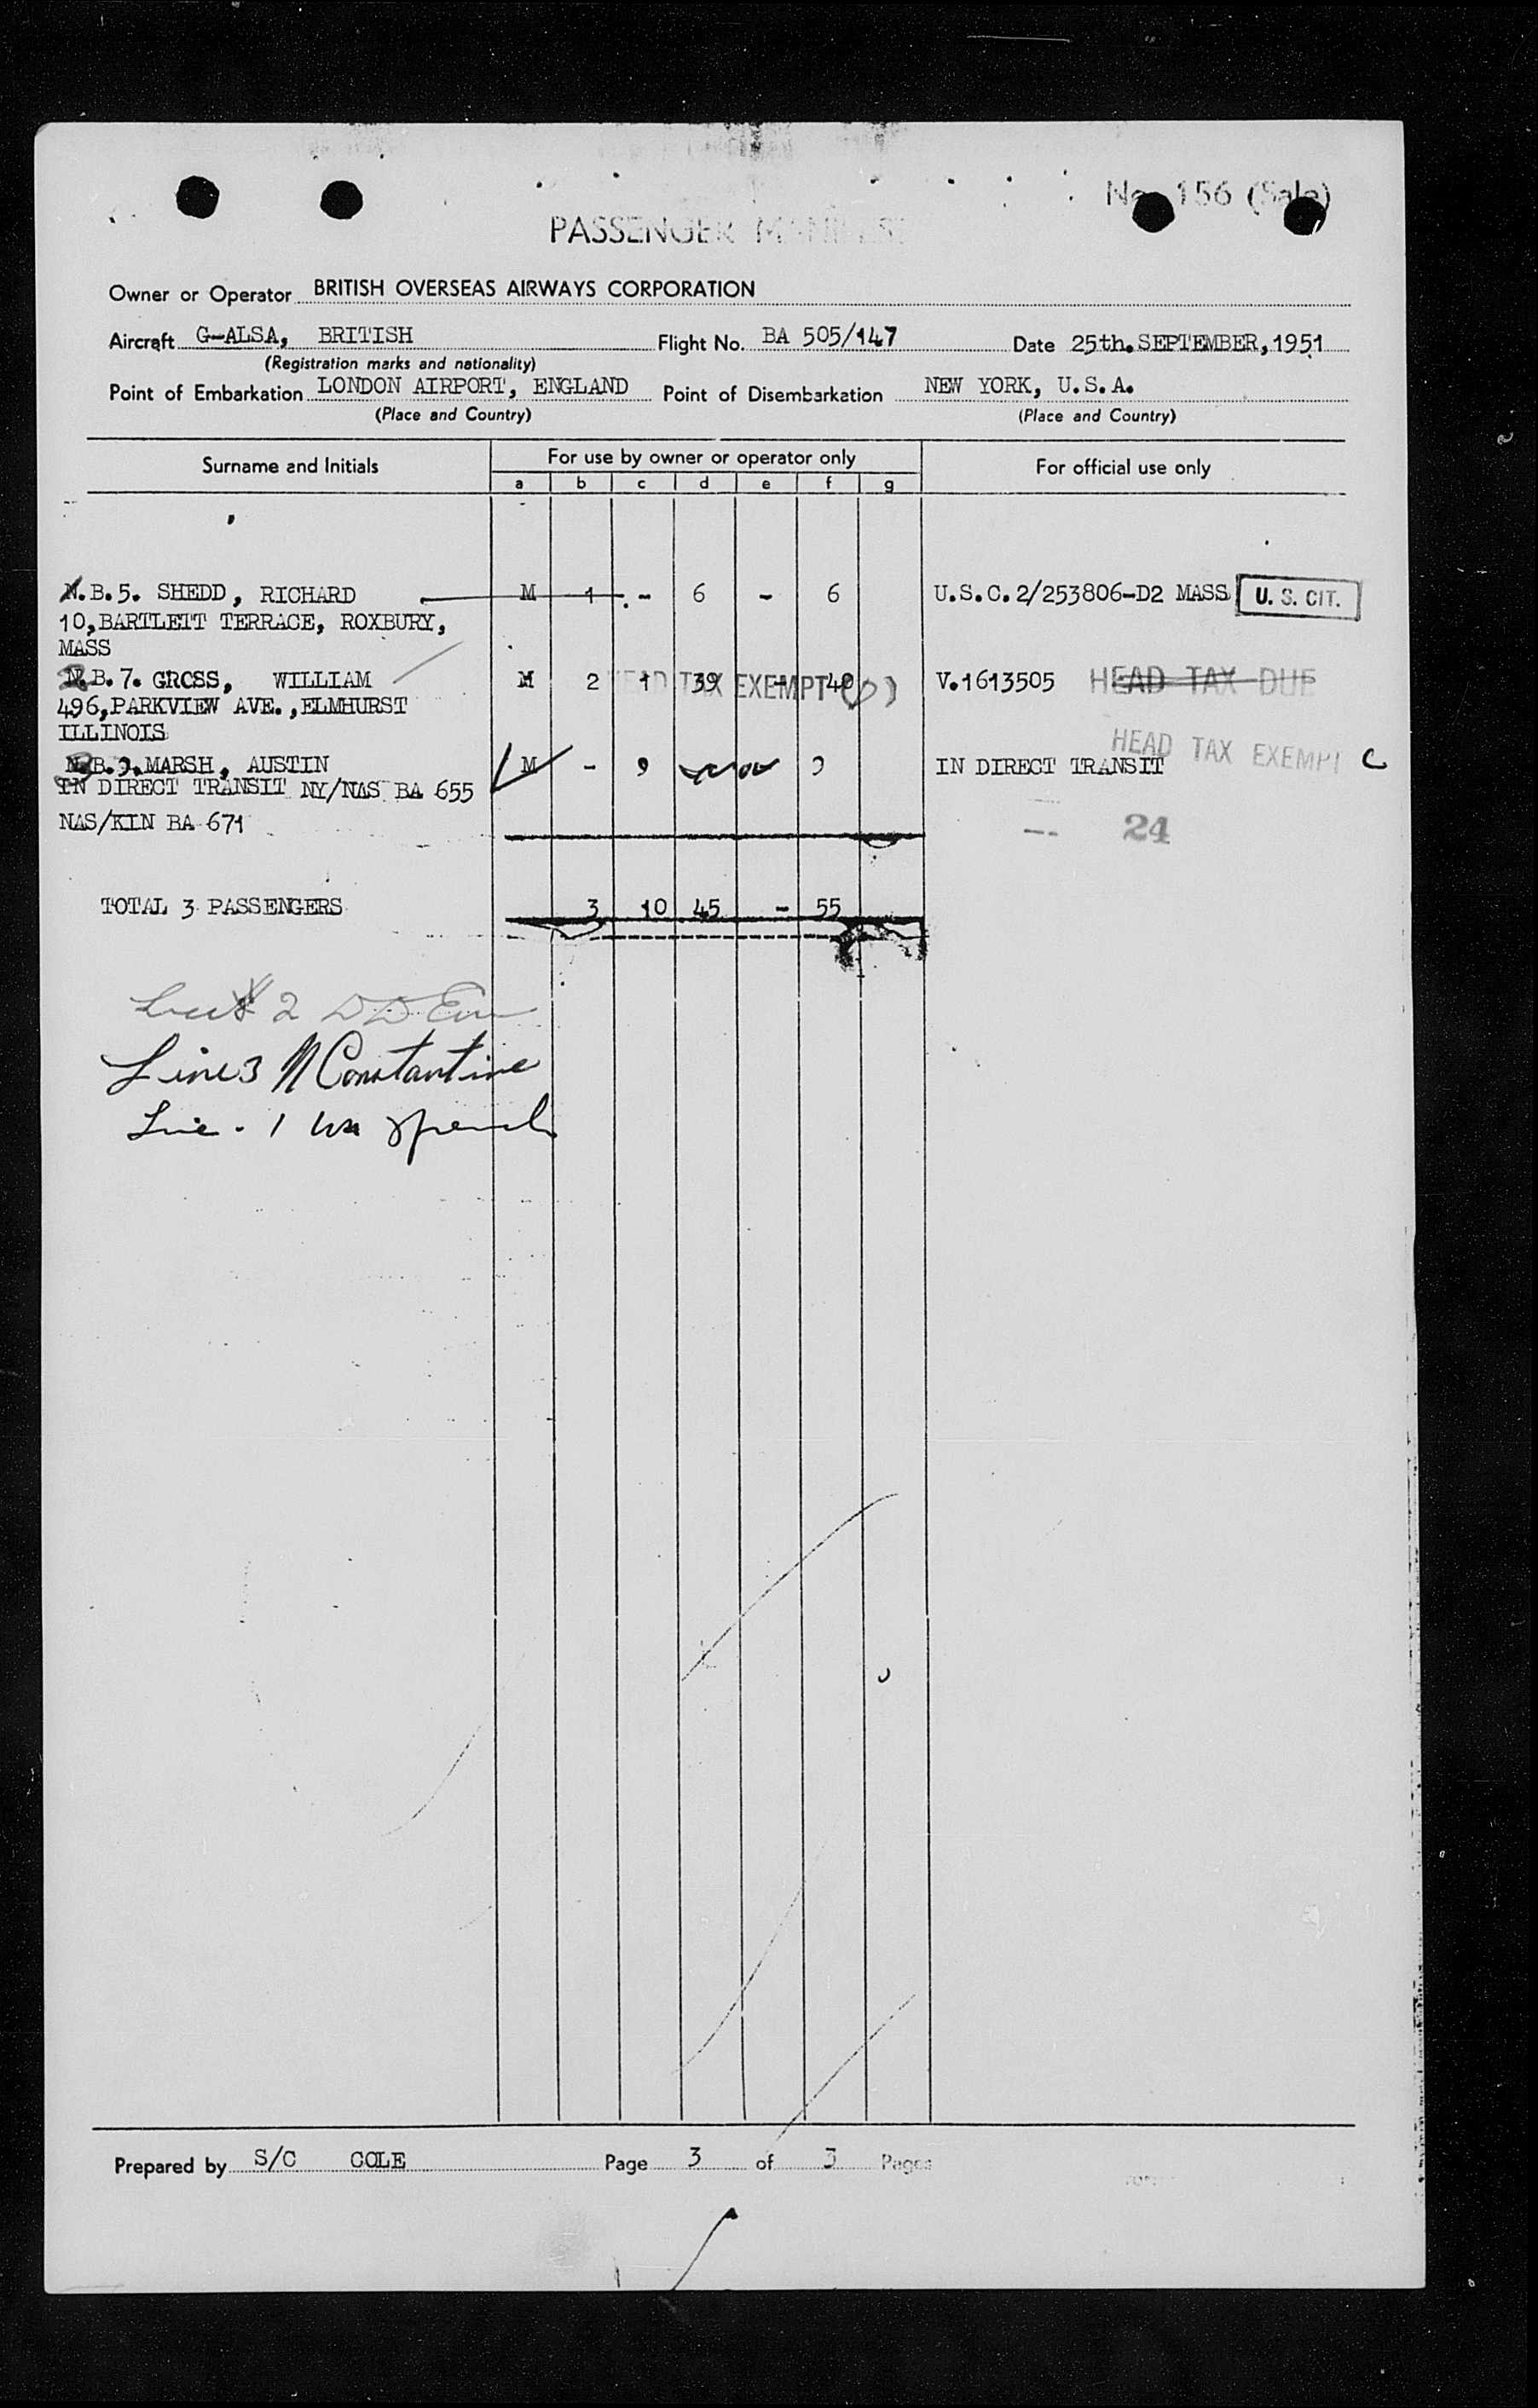 No. 156 (Sale)
PASSENGER MANIFEST
Owner or Operator BRITISH OVERSEAS AIRWAYS CORPORATION
Aircraft G-ALSA, BRITISH Flight No. BA 505/147 Date 25th. SEPTEMBER, 1951
(Registration marks and nationality)
Point of Embarkation LONDON AIRPORT, ENGLAND Point of Disembarkation NEW YORK, U.S.A.
(Place and Country) (Place and Country)
Surname and Initials For use by owner or operator only For official use only
a b c d e f g
N.B.5. SHEDD, RICHARD M 1 - 6 - 6 U.S.C.2/253806-D2 MASS U. S. CIT.
10,BARTLETT TERRACE, ROXBURY,
MASS
N.B.7. GROSS, WILLIAM M 2 1 39 - 40 HEAD TAX EXEMPT V.1613505 HEAD TAX DUE
496,PARKVIEW AVE.,ELMHURST
ILLINOIS
HEAD TAX EXEMPT C
N.B.9. MARSH, AUSTIN M - 9 9 IN DIRECT TRANSIT
IN DIRECT TRANSIT NY/NAS BA 655
NAS/KIN BA 671
24
TOTAL 3 PASSENGERS 3 10 45 - 55
2
Line 3 N Constantine
Line - 1
Prepared by S/C COLE Page 3 of 3 Pages